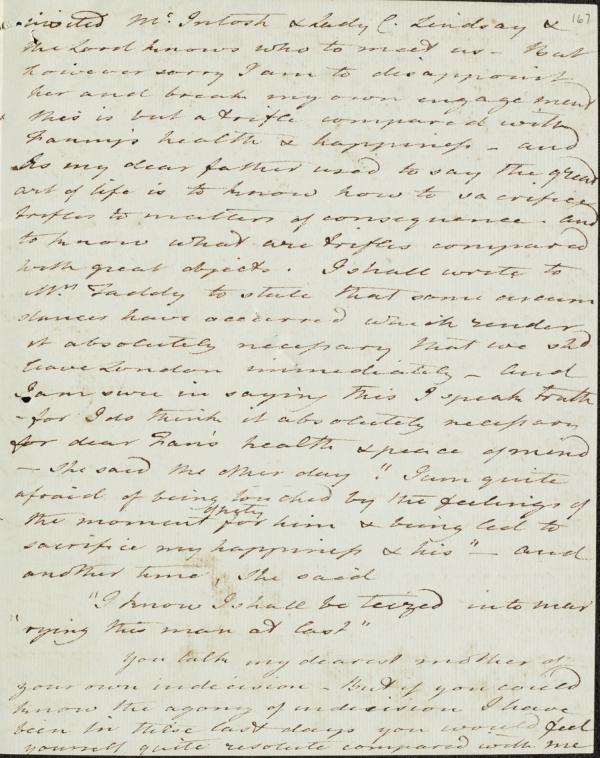 167
invited Mr. Intosh & Lady C. Lindsay &
the Lord knows who to meet us – But
however sorry I am to disappoint
her and break my own engagement
this is but a trifle compared with
Fanny's health & happiness – and
As my dear father used to say the great
art of life is to know how to sacrifice
trifles to matters of consequence – and
to know what are trifles compared
with great objects. I shall write to
Mrs. Faddy to state that some circum
stances have occurred which render
it absolutely necessary that we shd
leave London immediately – And
I am sure in saying this I speak truth
– for I do think it absolutely necessary
for dear Fan's health & peace of mind
– She said the other day "I am quite
afraid of being touched by the feelings of
the moment of pity for him & being led to
sacrifice my happiness & his" – and
another time, she said
"I know I shall be teized into mar
"rying this man at last"
You talk my dearest mother of
your own indecision – But if you could
know the agony of indecision I have
been in these last days you would feel
yourself quite resolute compared with me